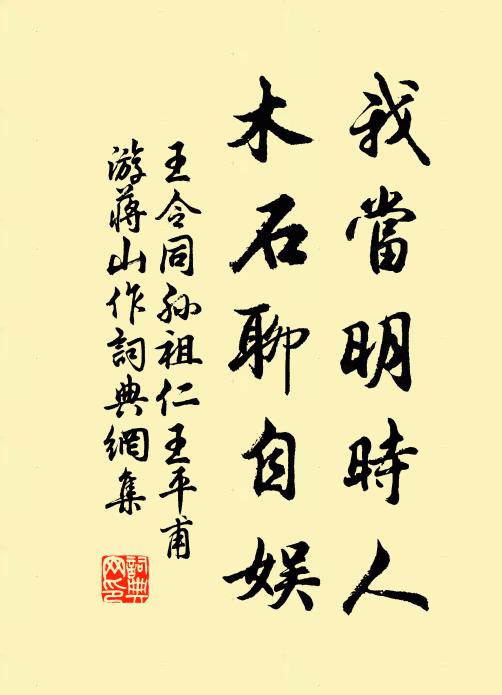 我當明時人
木石聊自娛
王令同孫祖仁王平甫
游蔣山作詞典網集
詞典
网印